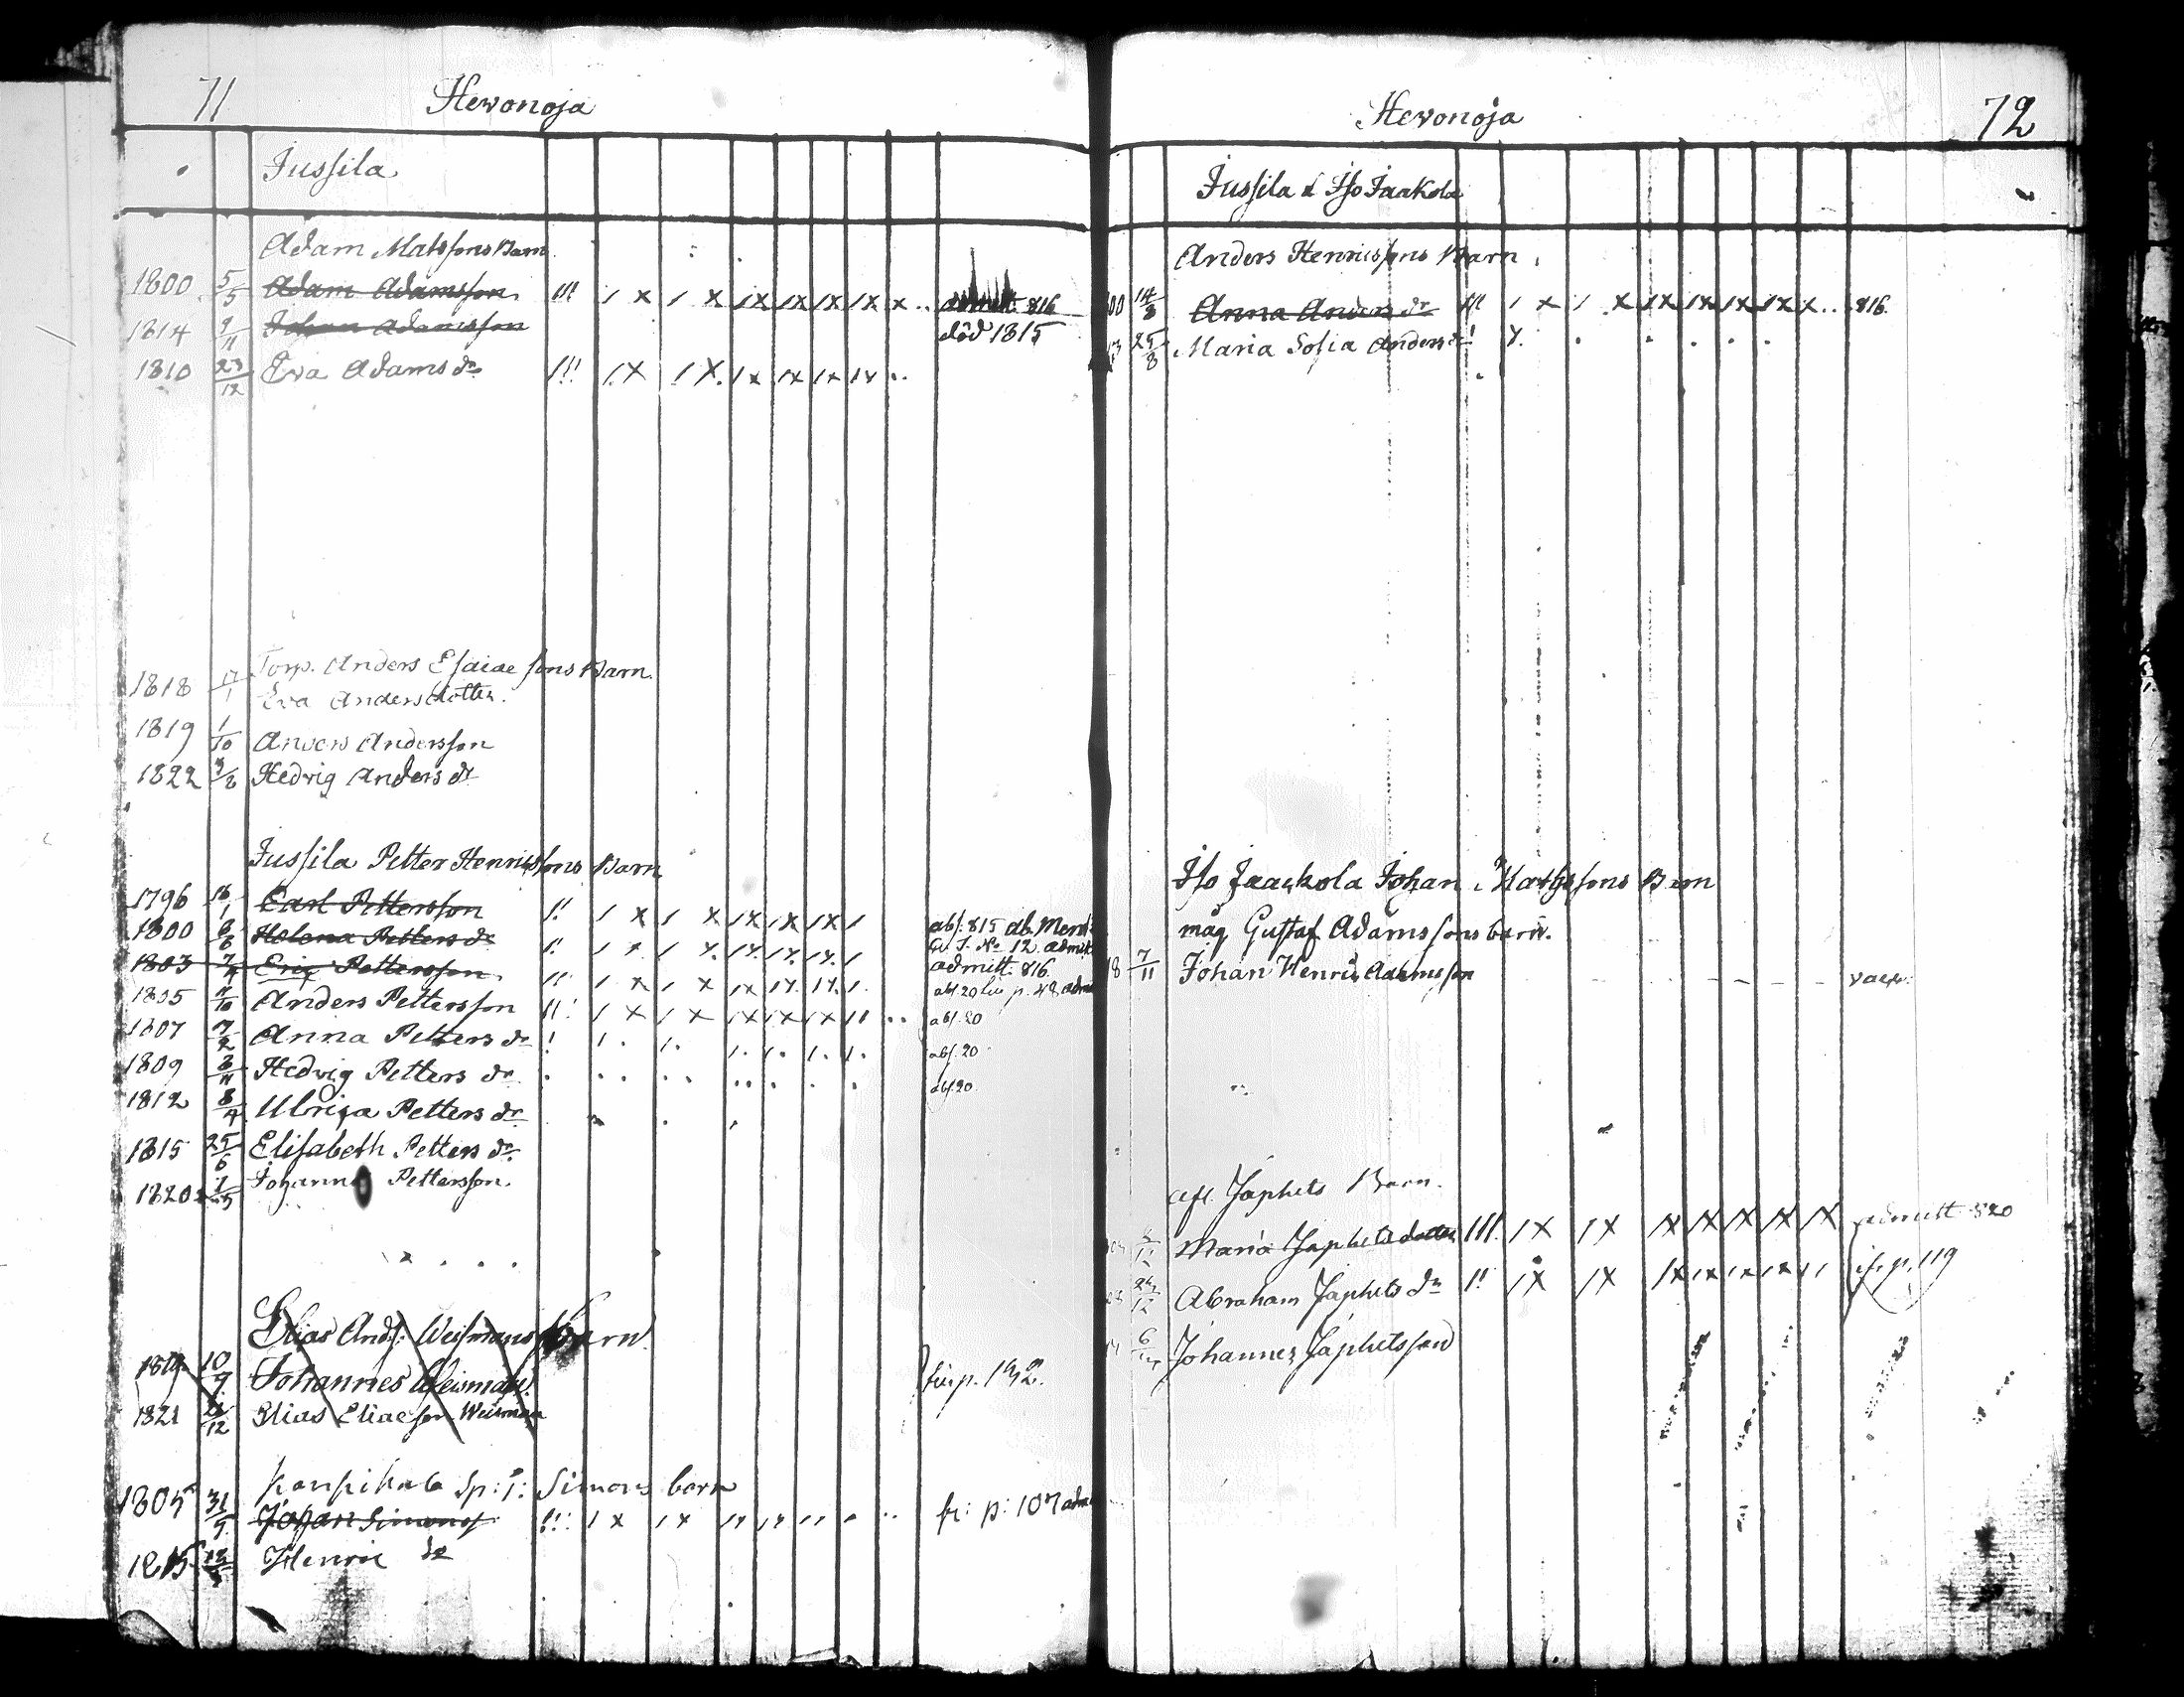 71 Hewonoja
Jussila
Adam Matssons Barn
1800 5/5 Adam Adamsson !!! 1 x 1 x 1x 1x 1x 1x x .. admitt. 816
1814 9/11 Johan Adamsson död 1815
1810 23/12 Eva Adams dr !!! 1 x 1 x 1x 1x 1x 1x ..
Torp. Anders Esaiae sons Barn
1818 17/1 Eva Andersdotter.
1819 1/10 Anders Andersson
1822 3/8 Hedvig Anders dr
Jussila Petter Henricssons Barn
1796 16/1 Carl Pettersson !! 1 x 1 x 1x 1x 1x 1 abs. 815 ab.
1800 Helena Petters dr !! 1 x 1 x 1x 1x 1x 1 No 12. admitt
1803 Eric Pettersson !! 1 x 1 x 1x 1x 1x 1 admitt. 816.
1805 Anders Pettersson !!! 1 x 1 x 1x 1x 1x 11 .. abs. 20 p. 48
1807 Anna Petters dr ! 1 . 1. 1. 1. 1. 1. abs. 20
1809 Hedvig Petters dr abs. 20
1812 8/4 Ulrica Petters dr abs. 20.
1815 25/6 Elisabeth Petters dr.
1820 Johannes Pettersson.
Elias And: Weismans Barn
10/9 Johannes Weisman. p. 192.
1821 21/12 Elias Eliaeson Weisman
Sp: J: Simons barn
1805 31/ Johan Simonss !!! 1 x 1 x fr: p: 107
1815 Henric dr
Hewonoja 72
Jussila & Iso Jaakola
Anders Henricssons Barn
00 14/8 Anna Anders dr !!! 1 x 1 x 1x 1x 1x 1x x .. 816.
25/8 Maria Sofia Anders dr !
Iso Jaackola Johan Mathssons Barn
måg Gustaf Adamssons barn.
18 7/11 Johan Henric Adamsson vacc.
afl. Japhets Barn.
Maria Japhetsdotter !!! 1x 1x 1x 1x 1x 1x 1x admitt 820
Abraham Japhets dr !! 1x 1x 1x 1x 1x 1x p. 119
Johannes Japhetsson